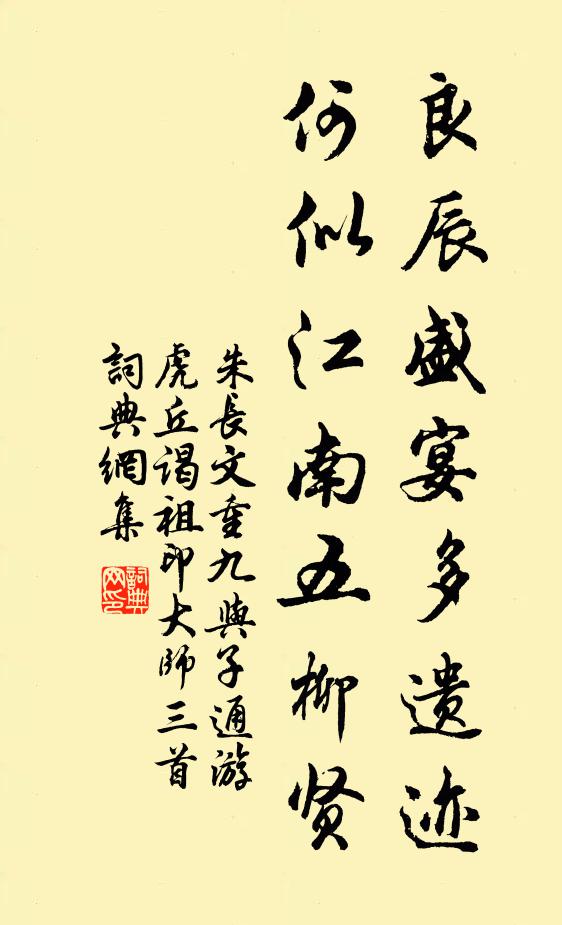 良辰盛宴多遗迹
何似江南五柳贤
朱長文重九與子通游
虎丘谒祖印大師三首
詞典網集
詞典
网印